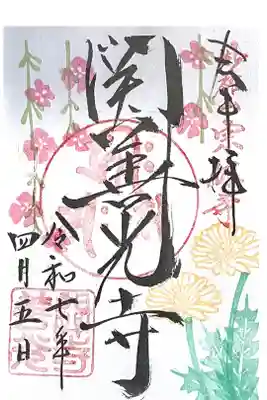 奉拝
関善光寺
令和七年
四月五日